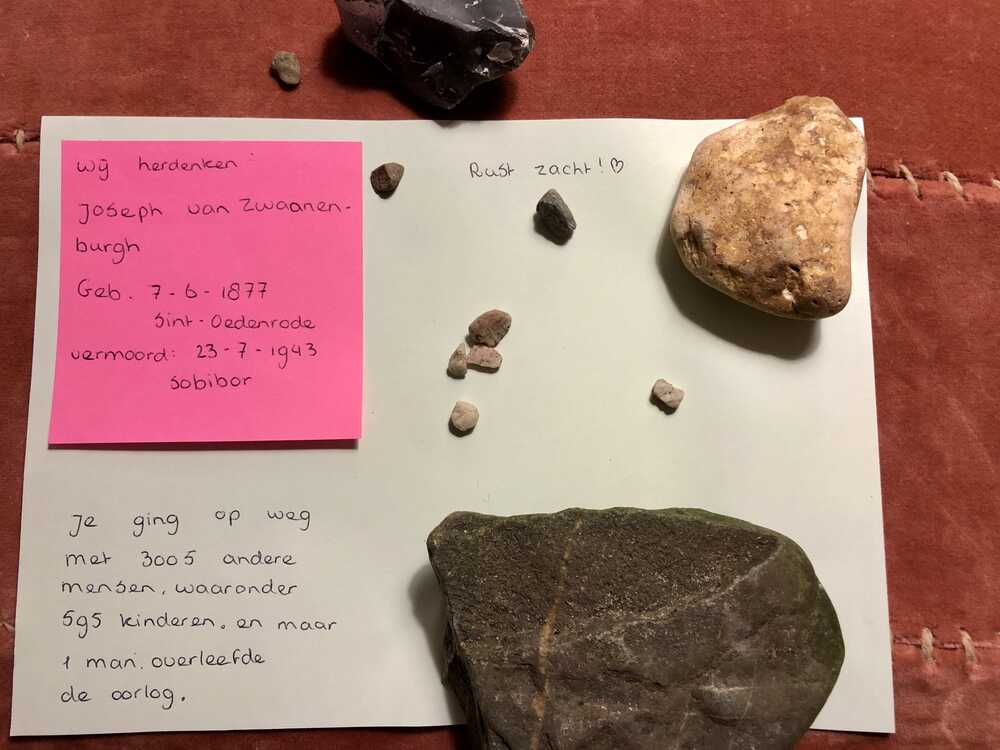 wij herdenken:
Joseph van Zwaanen-
burgh
Geb. 7-6-1877
Sint-Oedenrode
vermoord: 23-7-1943
Sobibor
Rust zacht! ♡
Je ging op weg
met 3005 andere
mensen, waaronder
595 kinderen. en maar
1 man. overleefde
de oorlog.